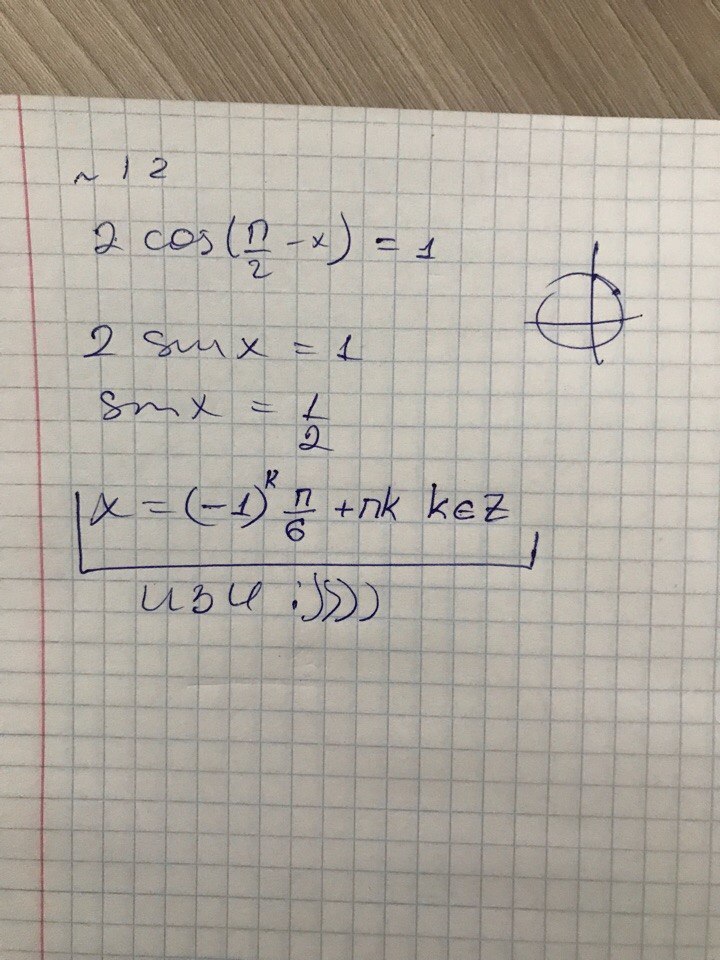 ~ 12
2 cos(π/2 - x) = 1
2 sin x = 1
sin x = 1/2
x = (-1)^k π/6 + πk k∈Z
изи :))))